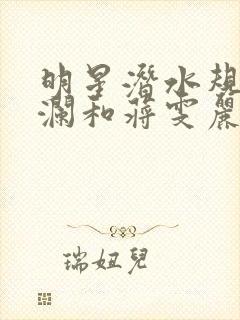 明星潛水規
瀾和蔣雯麗
瑞妞兒